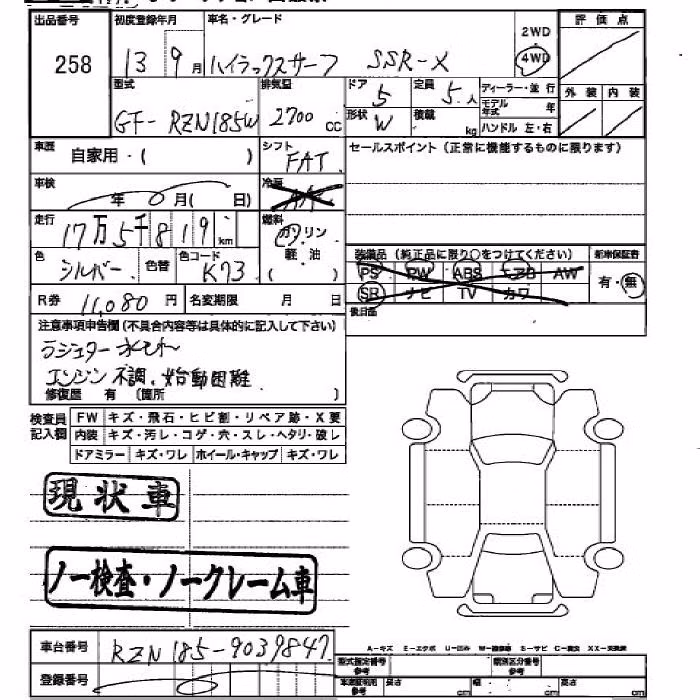 出品番号 初度登録年月 車名・グレード 評価点
258 13 9月 ハイラックスサーフ SSR-X 2WD 4WD
型式 排気量 ドア 定員 ディーラー・並行 外装 内装
GF- RZN185W 2700cc 5 5人 モデル年式 年
形状 W 積載 kg ハンドル 左・右
車歴 自家用・( ) シフト FAT セールスポイント(正常に機能するものに限ります)
車検 年 月( 日) 冷房
走行 17万5千819km 燃料 ガソリン
色 シルバー 色替 色コード K73 軽油 ( )
装備品(純正品に限り○をつけてください) 新車保証書
PS PW ABS エアB AW 有・無
SR ナビ TV カワ
R券 11,080円 名変期限 月 日 後日品
注意事項申告欄(不具合内容等は具体的に記入して下さい)
ラジエター水モレ
エンジン不調、始動困難
修復歴 有(箇所 )
検査員記入欄 FW キズ・飛石・ヒビ割・リペア跡・X要
内装 キズ・汚レ・コゲ・穴・スレ・ヘタリ・破レ
ドアミラー キズ・ワレ ホイール・キャップ キズ・ワレ
現状車
ノー検査・ノークレーム車
車台番号 RZN185-9039847
A-キズ E-エクボ U-凹み
登録番号 型式指定番号 参考 類別区分番号 参考
長さ cm 幅 cm 高さ cm